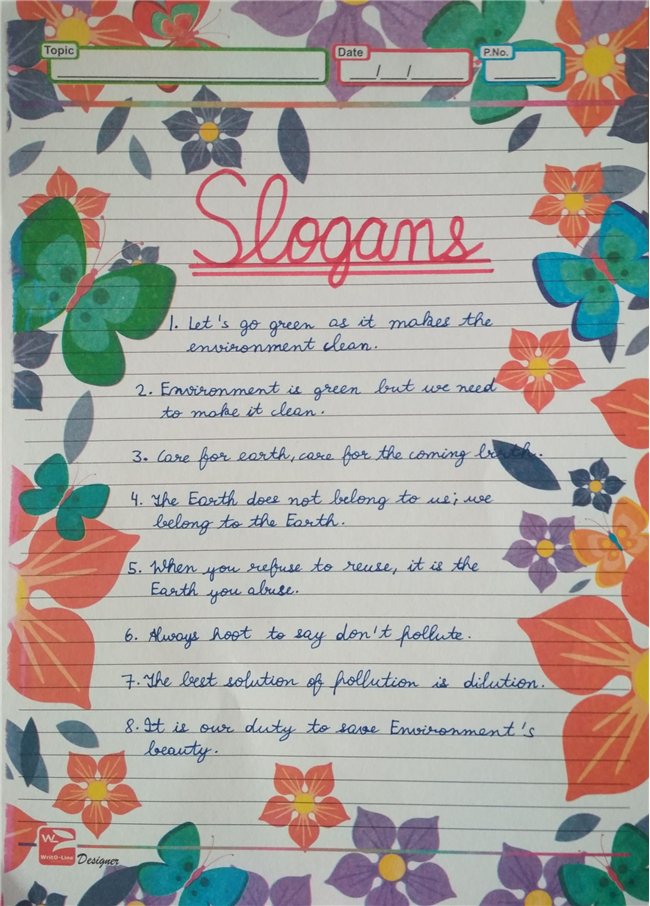 Topic
Date
P.No.
/ /
Slogans
1. Let's go green as it makes the
environment clean.
2. Environment is green but we need
to make it clean.
3. Care for earth, care for the coming birth.
4. The Earth does not belong to us; we
belong to the Earth.
5. When you refuse to reuse, it is the
Earth you abuse.
6. Always hoot to say don't pollute.
7. The best solution of pollution is dilution.
8. It is our duty to save Environment's
beauty.
W
WritO-Line
Designer